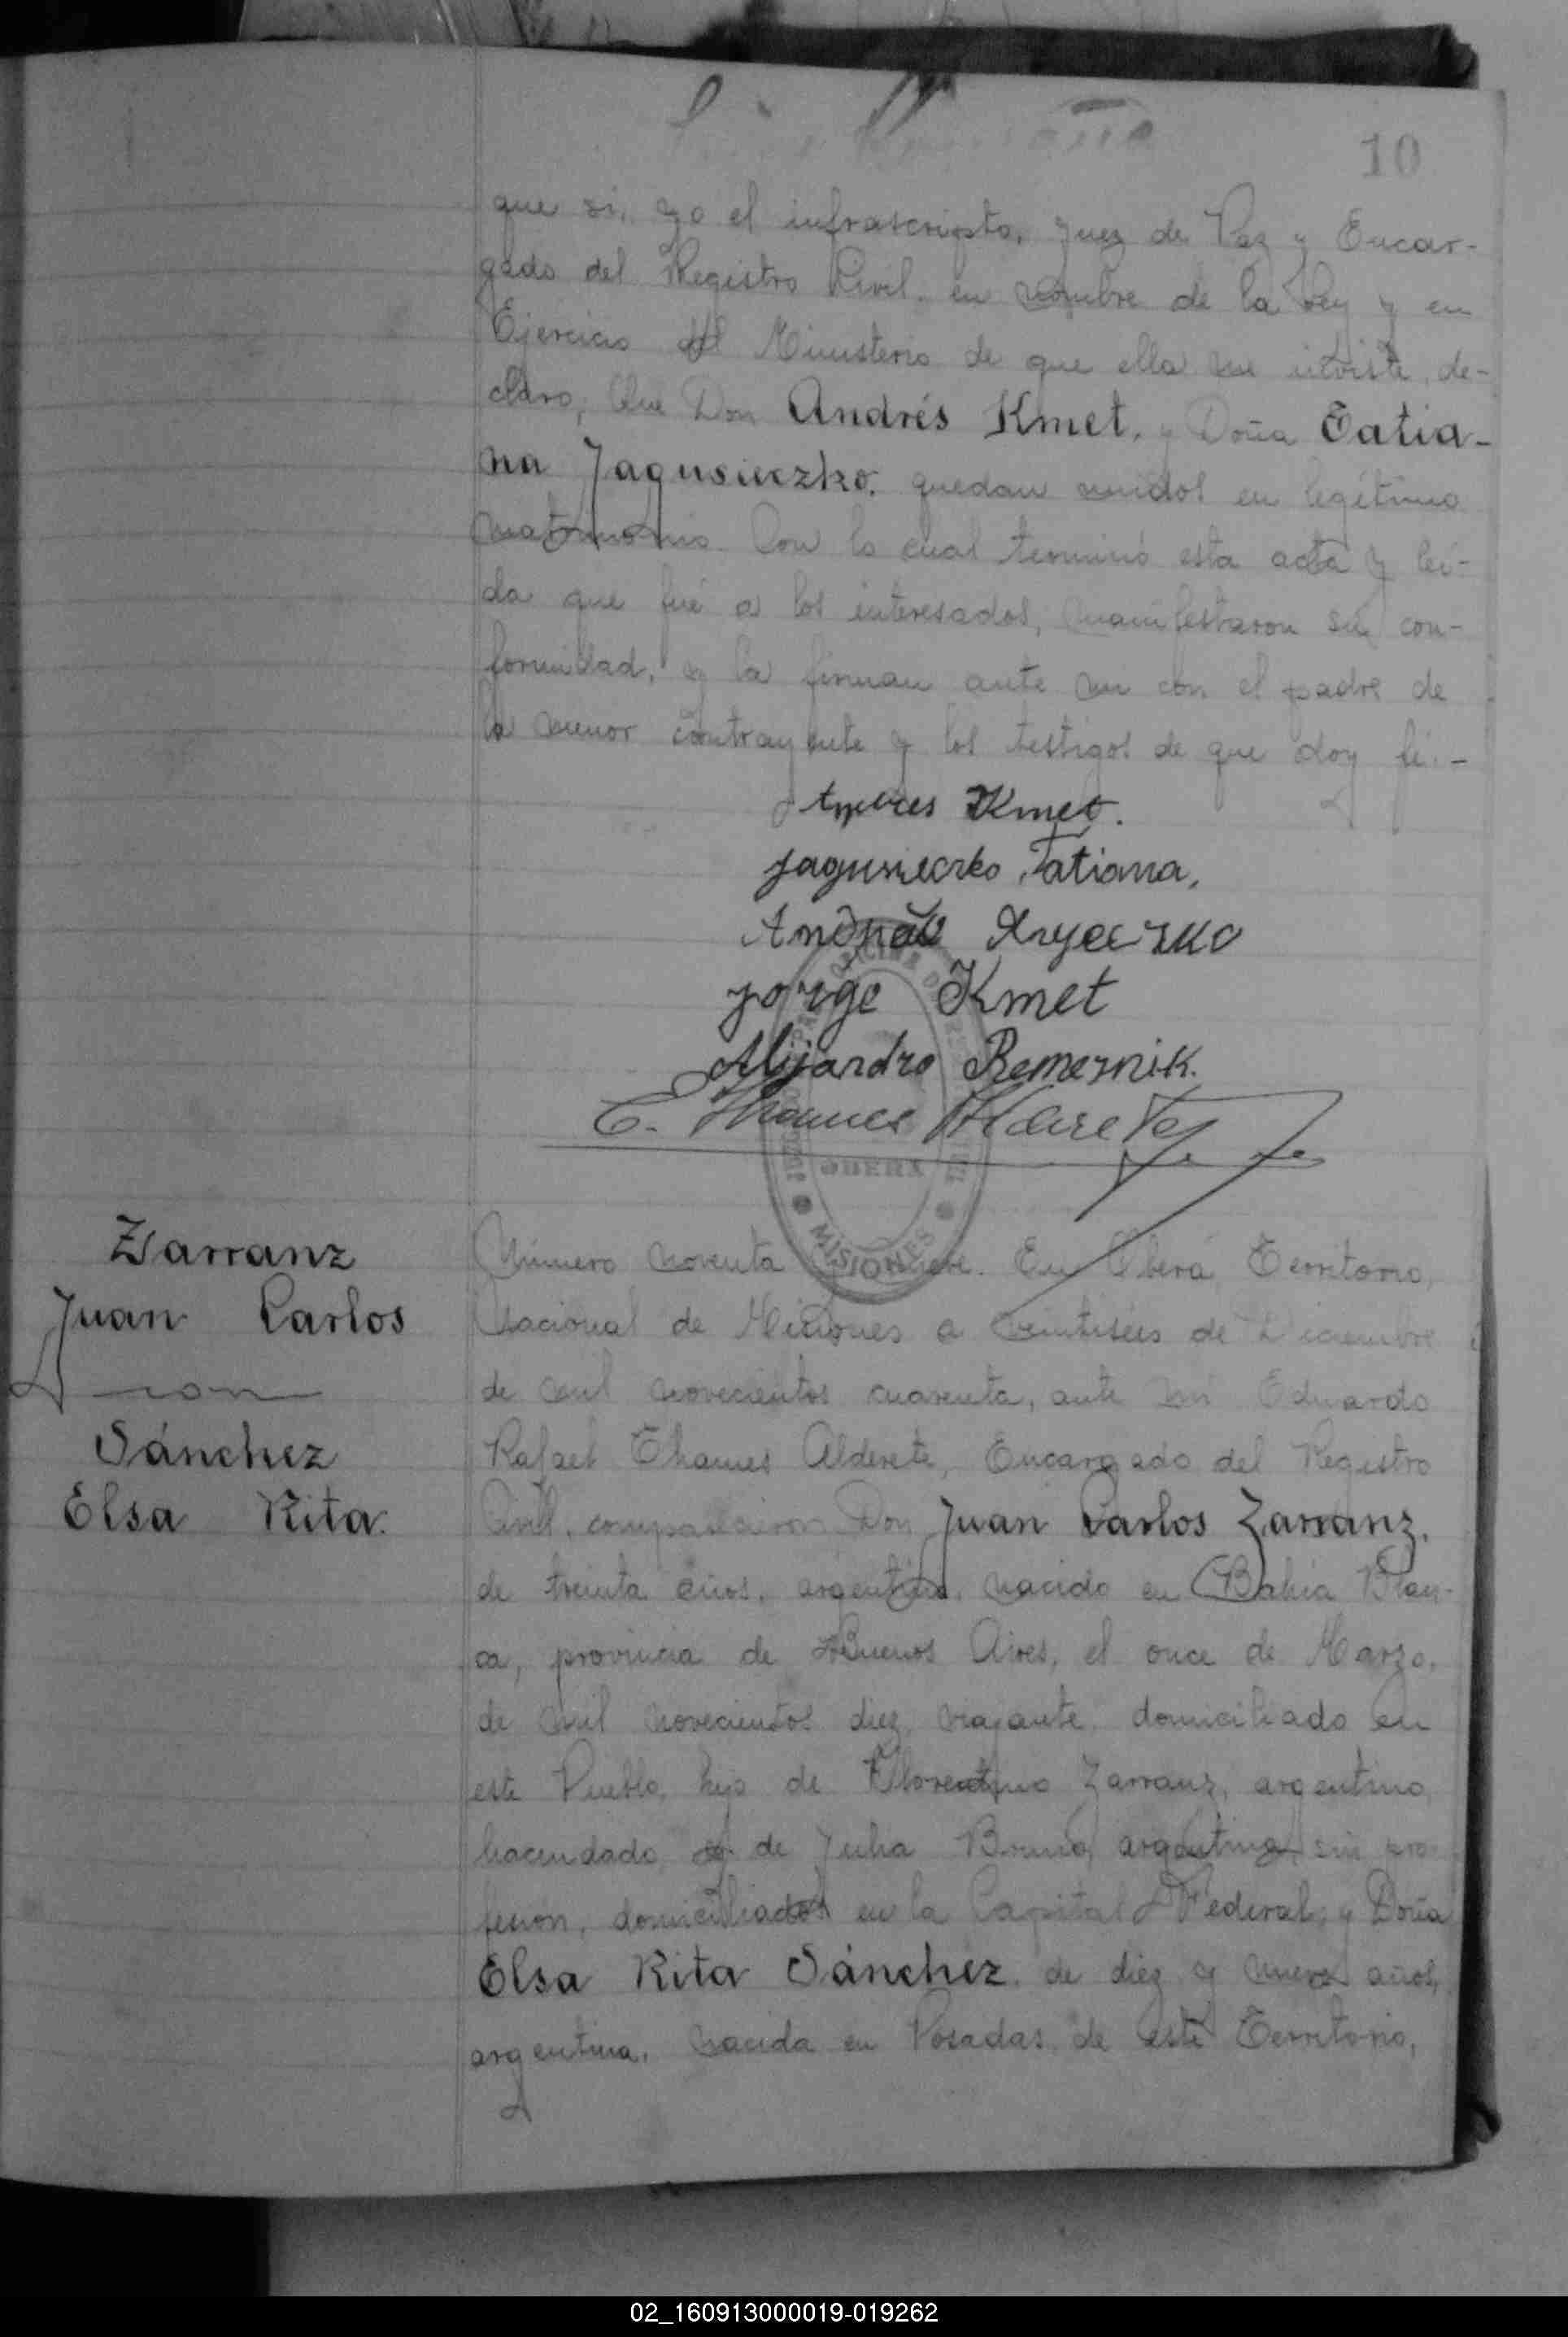 10
que si, yo el infrascripto, Juez de Paz y Encar-
gado del Registro Civil, en nombre de la Ley y en
Ejercicio del Ministerio de que ella me inviste, de-
claro; Que Don Andrés Kmet, y Doña Tatia-
na Jagusieczko, quedan unidos en legítimo
matrimonio. Con lo cual terminó esta acta y leí-
da que fué a los interesados, manifestaron su con-
formidad, y la firman ante mi con el padre de
la menor contrayente y los testigos de que doy fé.-
Kmet.
Jagusieczko Tatiana,
Jorge Kmet
Alijandro Remeznik.
E. Thames Alderete
OBERA
MISIONES
Zarranz
Juan Carlos
con
Sánchez
Elsa Rita.
Número noventa y nueve. En Oberá, Territorio,
Nacional de Misiones a veintiséis de Diciembre
de mil novecientos cuarenta, ante mí Eduardo
Rafael Thames Alderete, Encargado del Registro
Civil, comparecieron Don Juan Carlos Zarranz,
de treinta años, argentino, nacido en Bahía Blan-
ca, provincia de Buenos Aires, el once de Marzo,
de mil novecientos diez, viajante, domiciliado en
este Pueblo, hijo de Florentino Zarranz, argentino,
hacendado, y de Julia argentina, sin pro-
fesion, domiciliados en la Capital Federal; y Doña
Elsa Rita Sánchez, de diez y nueve años,
argentina, nacida en Posadas de este Territorio,
02_160913000019-019262